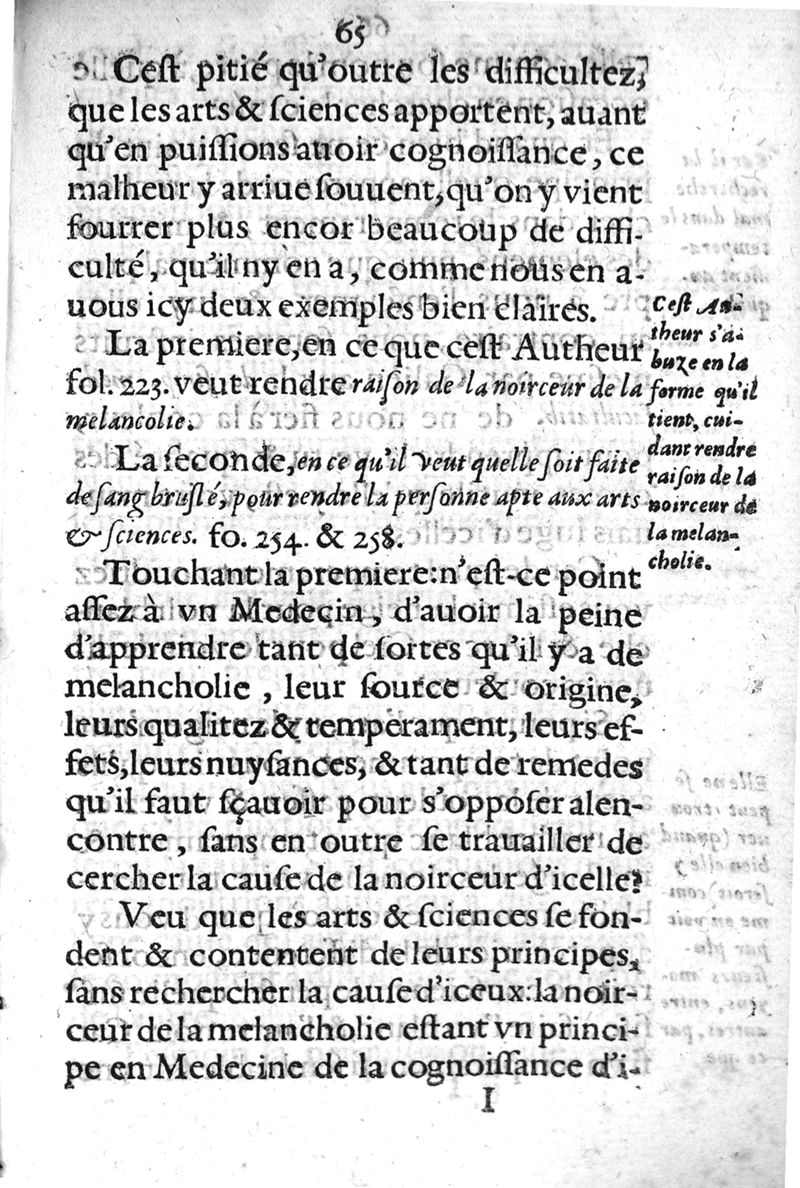 65
Cest pitié qu'outre les difficultez,
que les arts & ſciences apportent, auant
qu'en puiſſions auoir cognoiſſance, ce
malheur y arriue ſouuent, qu'on y vient
fourrer plus encor beaucoup de diffi-
culté, qu'il ny en a, comme nous en a-
uous icy deux exemples bien claires.
La premiere, en ce que ceſt Autheur
fol. 223. veut rendre raiſon de la noirceur de la
melancolie.
La ſeconde, en ce qu'il veut quelle ſoit faite
de ſang bruſlé, pour rendre la perſonne apte aux arts
& ſciences. fo. 254. & 258.
Touchant la premiere: n'eſt-ce point
aſſez à vn Medecin, d'auoir la peine
d'apprendre tant de ſortes qu'il y a de
melancholie, leur ſource & origine,
leurs qualitez & temperament, leurs ef-
fets, leurs nuyſances, & tant de remedes
qu'il faut ſçauoir pour s'oppoſer alen-
contre, ſans en outre ſe trauailler de
cercher la cauſe de la noirceur d'icelle?
Veu que les arts & ſciences ſe fon-
dent & contentent de leurs principes,
ſans rechercher la cauſe d'iceux: la noir-
ceur de la melancholie eſtant vn princi-
pe en Medecine de la cognoiſſance d'i-
I
Ceſt Au-
theur s'a-
buze en la
forme qu'il
tient, cui-
dant rendre
raiſon de la
noirceur de
la melan-
cholie.